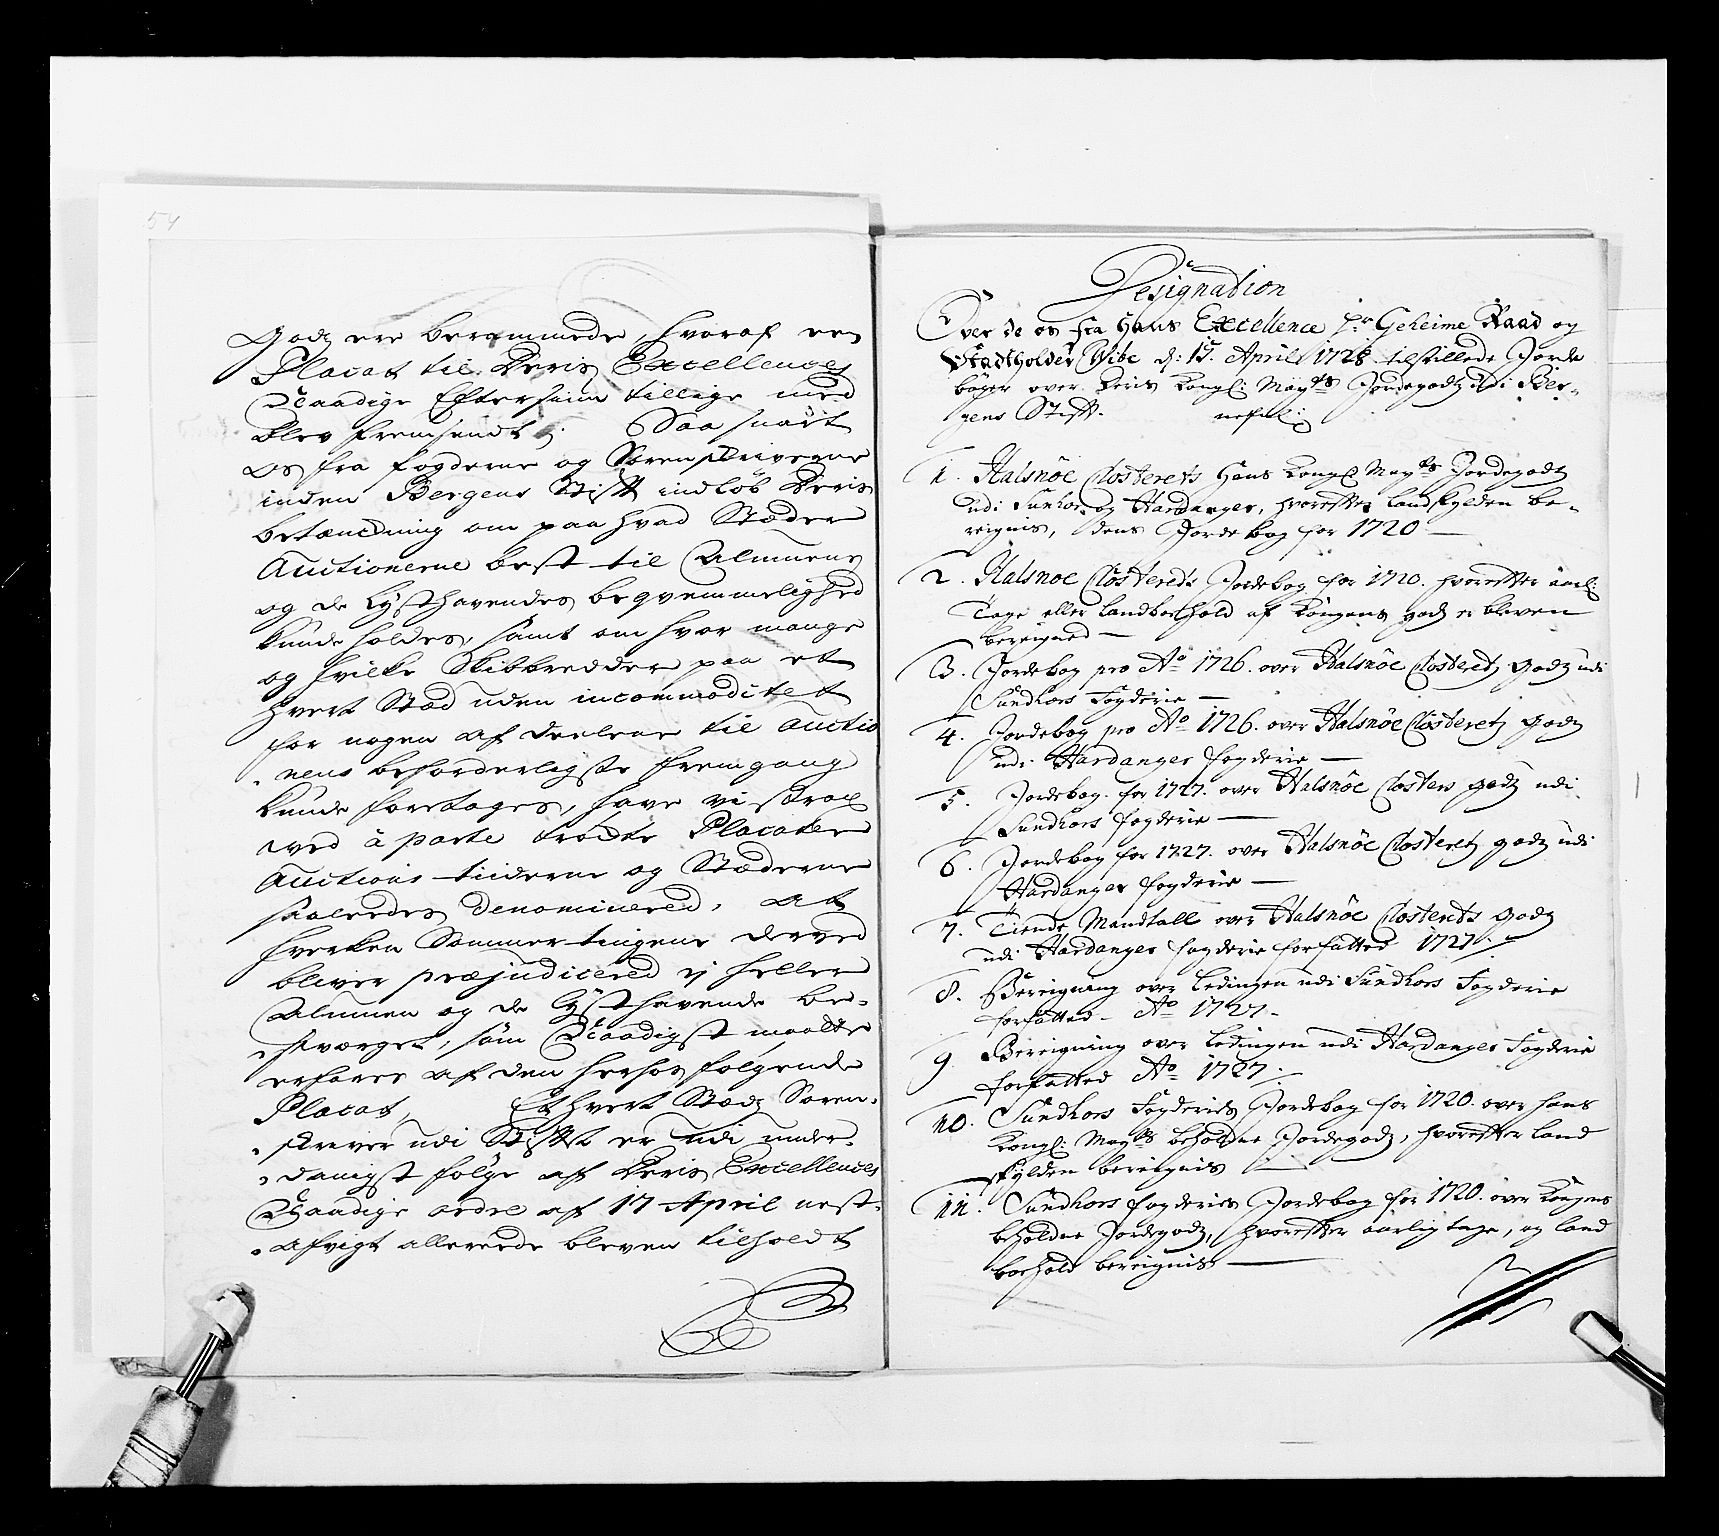 54
Godz ere berammede, hvoraf een
Placat til Deris Excellences
Naadige Eftersiun tillige med
blev fremsendt; Saa snart
os fra fogderne og Sorenskriverne
inden Bergens Stift indløb Deris
betænckning om paa hvad Stæder
Auctionerne best til Almuens
og de Lysthavendes beqvemmelighed
kunde holdes, samt om hvor mange
og hvilke Skibbredder paa et
hvert Stæd uden incommoditet
for nogen af deelene til Auctio
nens beforderligste fremgang
kunde foretages, have vi strax
ved à parte trÿckte Placater
Auctions tiiderne og Stæderne
saaleedes denominered, at
hverken Sommertingene derved
bliver præjudicered ej heller
Almuen og de Lÿsthavende be-
sværget, som Naadigst maatte
erfares af den herhos følgende
Placat, Et hvert Stædz Soren-
skriver udi Stiftet er udi under-
danigst følge af Deris Excellences
Naadige ordre af 17 April nest-
afvigt allereede bleven tilholdt
Designation
Over de os fra Hans Excellence Hr Geheime Raad og
Stadtholder Wibe d: 15. April 1728 tilstillede Jorde
bøger over Deris Kongl: Mayts Jordegodtz udi Ber-
gens Stift. nefnl:
1. Halsnöe Closterets Hans Kongl Mayts Jordegodtz
udi Sunhor. og Hardanger, hvorefter landskylden be-
reignis, dens Jordebog for 1720
2. Halsnoe Closterets Jordebog for 1720. hvorefter aarl:
Tage eller Landboehold af Kongens godtz er bleven
bereigned
3. Jordebog pro Ao 1726. over Halsnöe Closteretz godtz udi
Sundhors Fogderie
4. Jordebog pro Ao 1726. over Halsnöe Closteretz godtz
udi Hardanger fogderie
5. Jordebog. for 1727. over Halsnöe Closters godtz udi
Sundhors fogderie
6. Jordebog for 1727. over Halsnöe Closteretz godtz udi
Hardanger fogderie
7. Tiende Mandtall over Halsnöe Closterets godtz
udi Hardanger fogderie forfatted 1727.
8. Bereigning over Ledingen udi Sundhors Fogderie
forfatted Ao 1727.
9. Bereigning over Ledingen udi Hardanger Fogderie
forfatted Ao 1727.
10. Sundhors Fogderies Jordebog for 1720. over hans
Kongl: Mayts beholdne Jordegodtz, hvorefter land
skylden bereignis
11. Sundhors fogderies Jordebog for 1720. over Kongens
beholdne Jordegodtz, hvorefter aarlig tage, og land
boehold bereignis